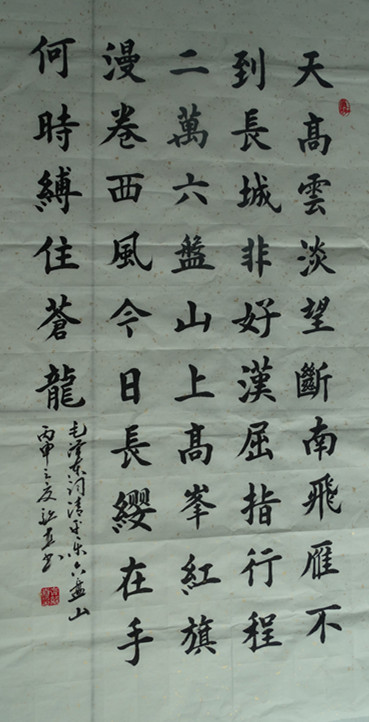 天高雲淡望斷南飛雁不
到長城非好漢屈指行程
二萬六盤山上高峯紅旗
漫卷西風今日長纓在手
何時縛住蒼龍
毛澤东词清平乐六盘山
丙申之夏